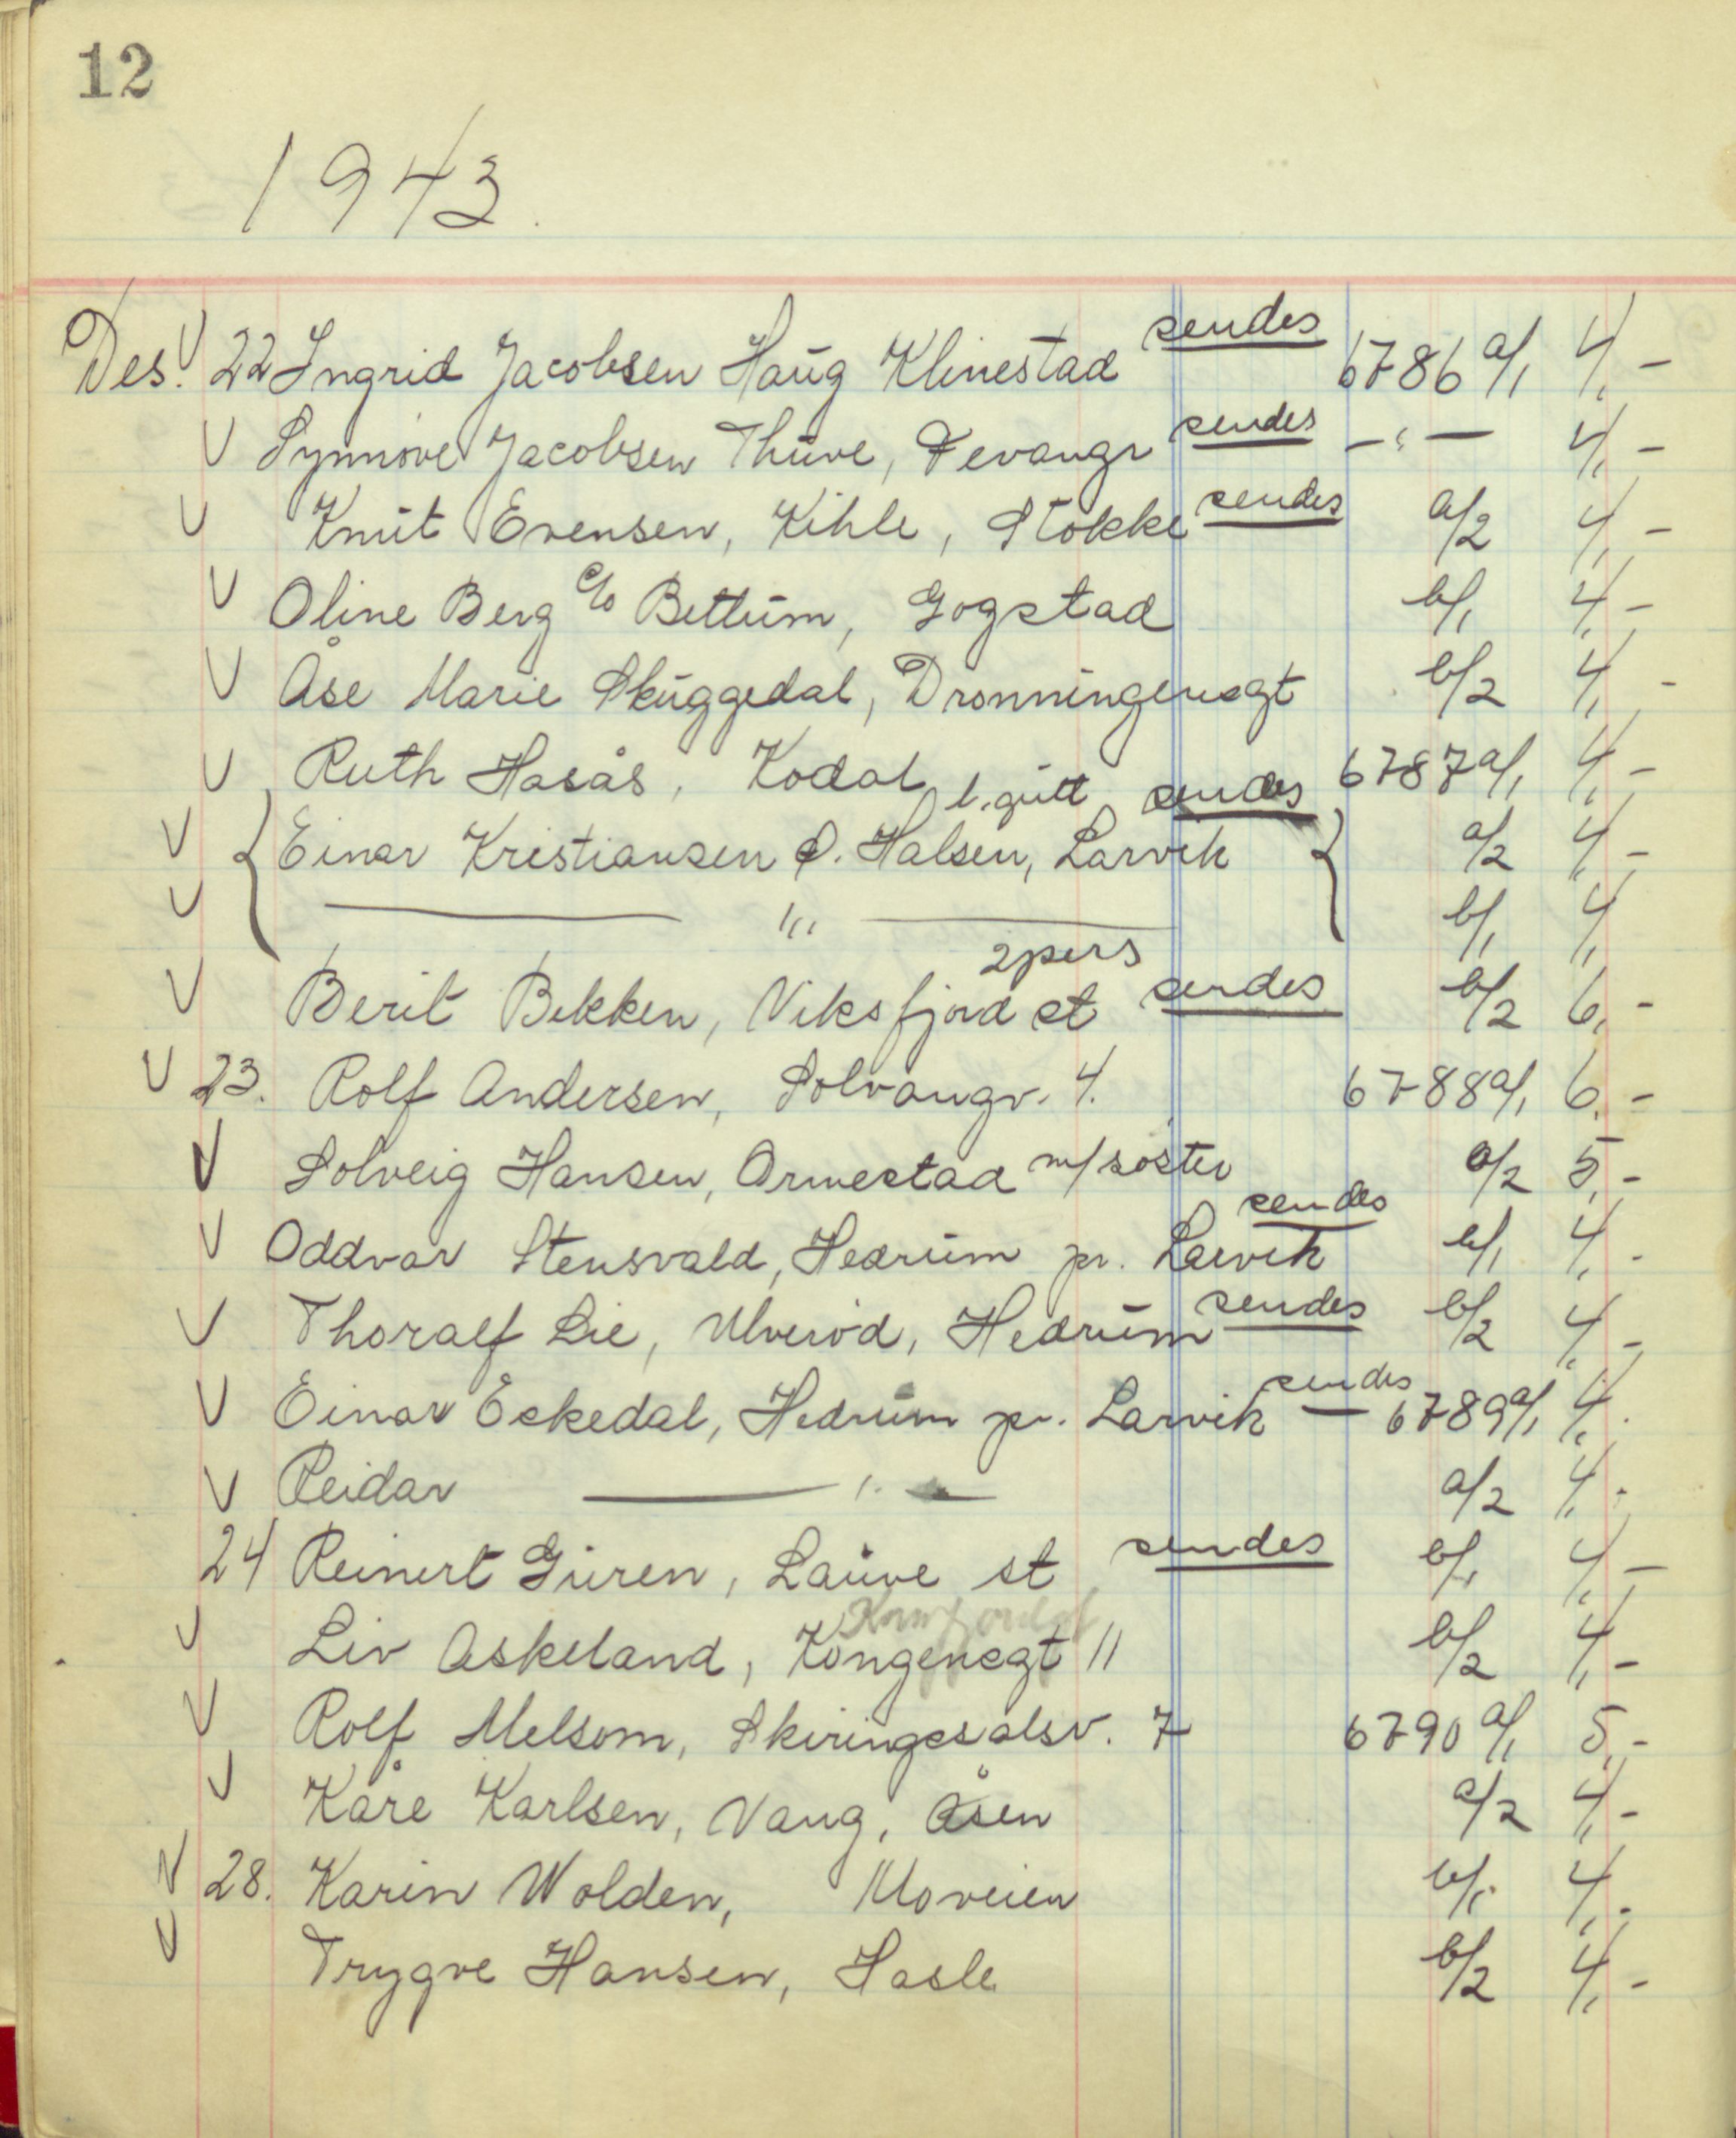 12
1943.
Des. V 22 Ingrid Jacobsen Haug Klinestad sendes 6786 a/1 4,-
V Synnøve Jacobsen Thuve, sendes -"- 4,-
V Knut Evensen, Kihle, Stokke sendes a/2 4,-
V Oline Berg c/o Bettum, Gogstad b/1 4,-
V Åse Marie Skuggedal, Dronningensgt b/2 4,-
V Ruth Hasås, Kodal 6787 a/1 4,-
l. gutt sendes
V { Einar Kristiansen Ø. Halsen, Larvik } a/2 4,-
V —— "' —— b/1 4,
2 pers
V Berit Bekken, Viksfjord st sendes b/2 6,-
V 23. Rolf Andersen, Solvangv. 4. 6788 a/1 6,-
V Solveig Hansen, Ormestad m/søster a/2 5,-
sendes
V Oddvar Stensvald, Hedrum pr. Larvik b/1 4,-
V Thoralf Lie, Ulverød, Hedrum sendes b/2 4,-
V Einar Eskedal, Hedrum pr. Larvik sendes — 6789 a/1 4,.
V Reidar —— " — a/2 4,-
24 Reinert Guren, Lauve st sendes b/1 4,-
V Liv Askeland, Kongensgt 11 b/2 4,-
V Rolf Melsom, Skiringssalsv. 7 6790 a/1 5,-
V Kåre Karlsen, Vang, Åsen a/2 4,-
V 28. Karin Wolden, Moveien b/1 4,-
V Trygve Hansen, Hasle b/2 4,-